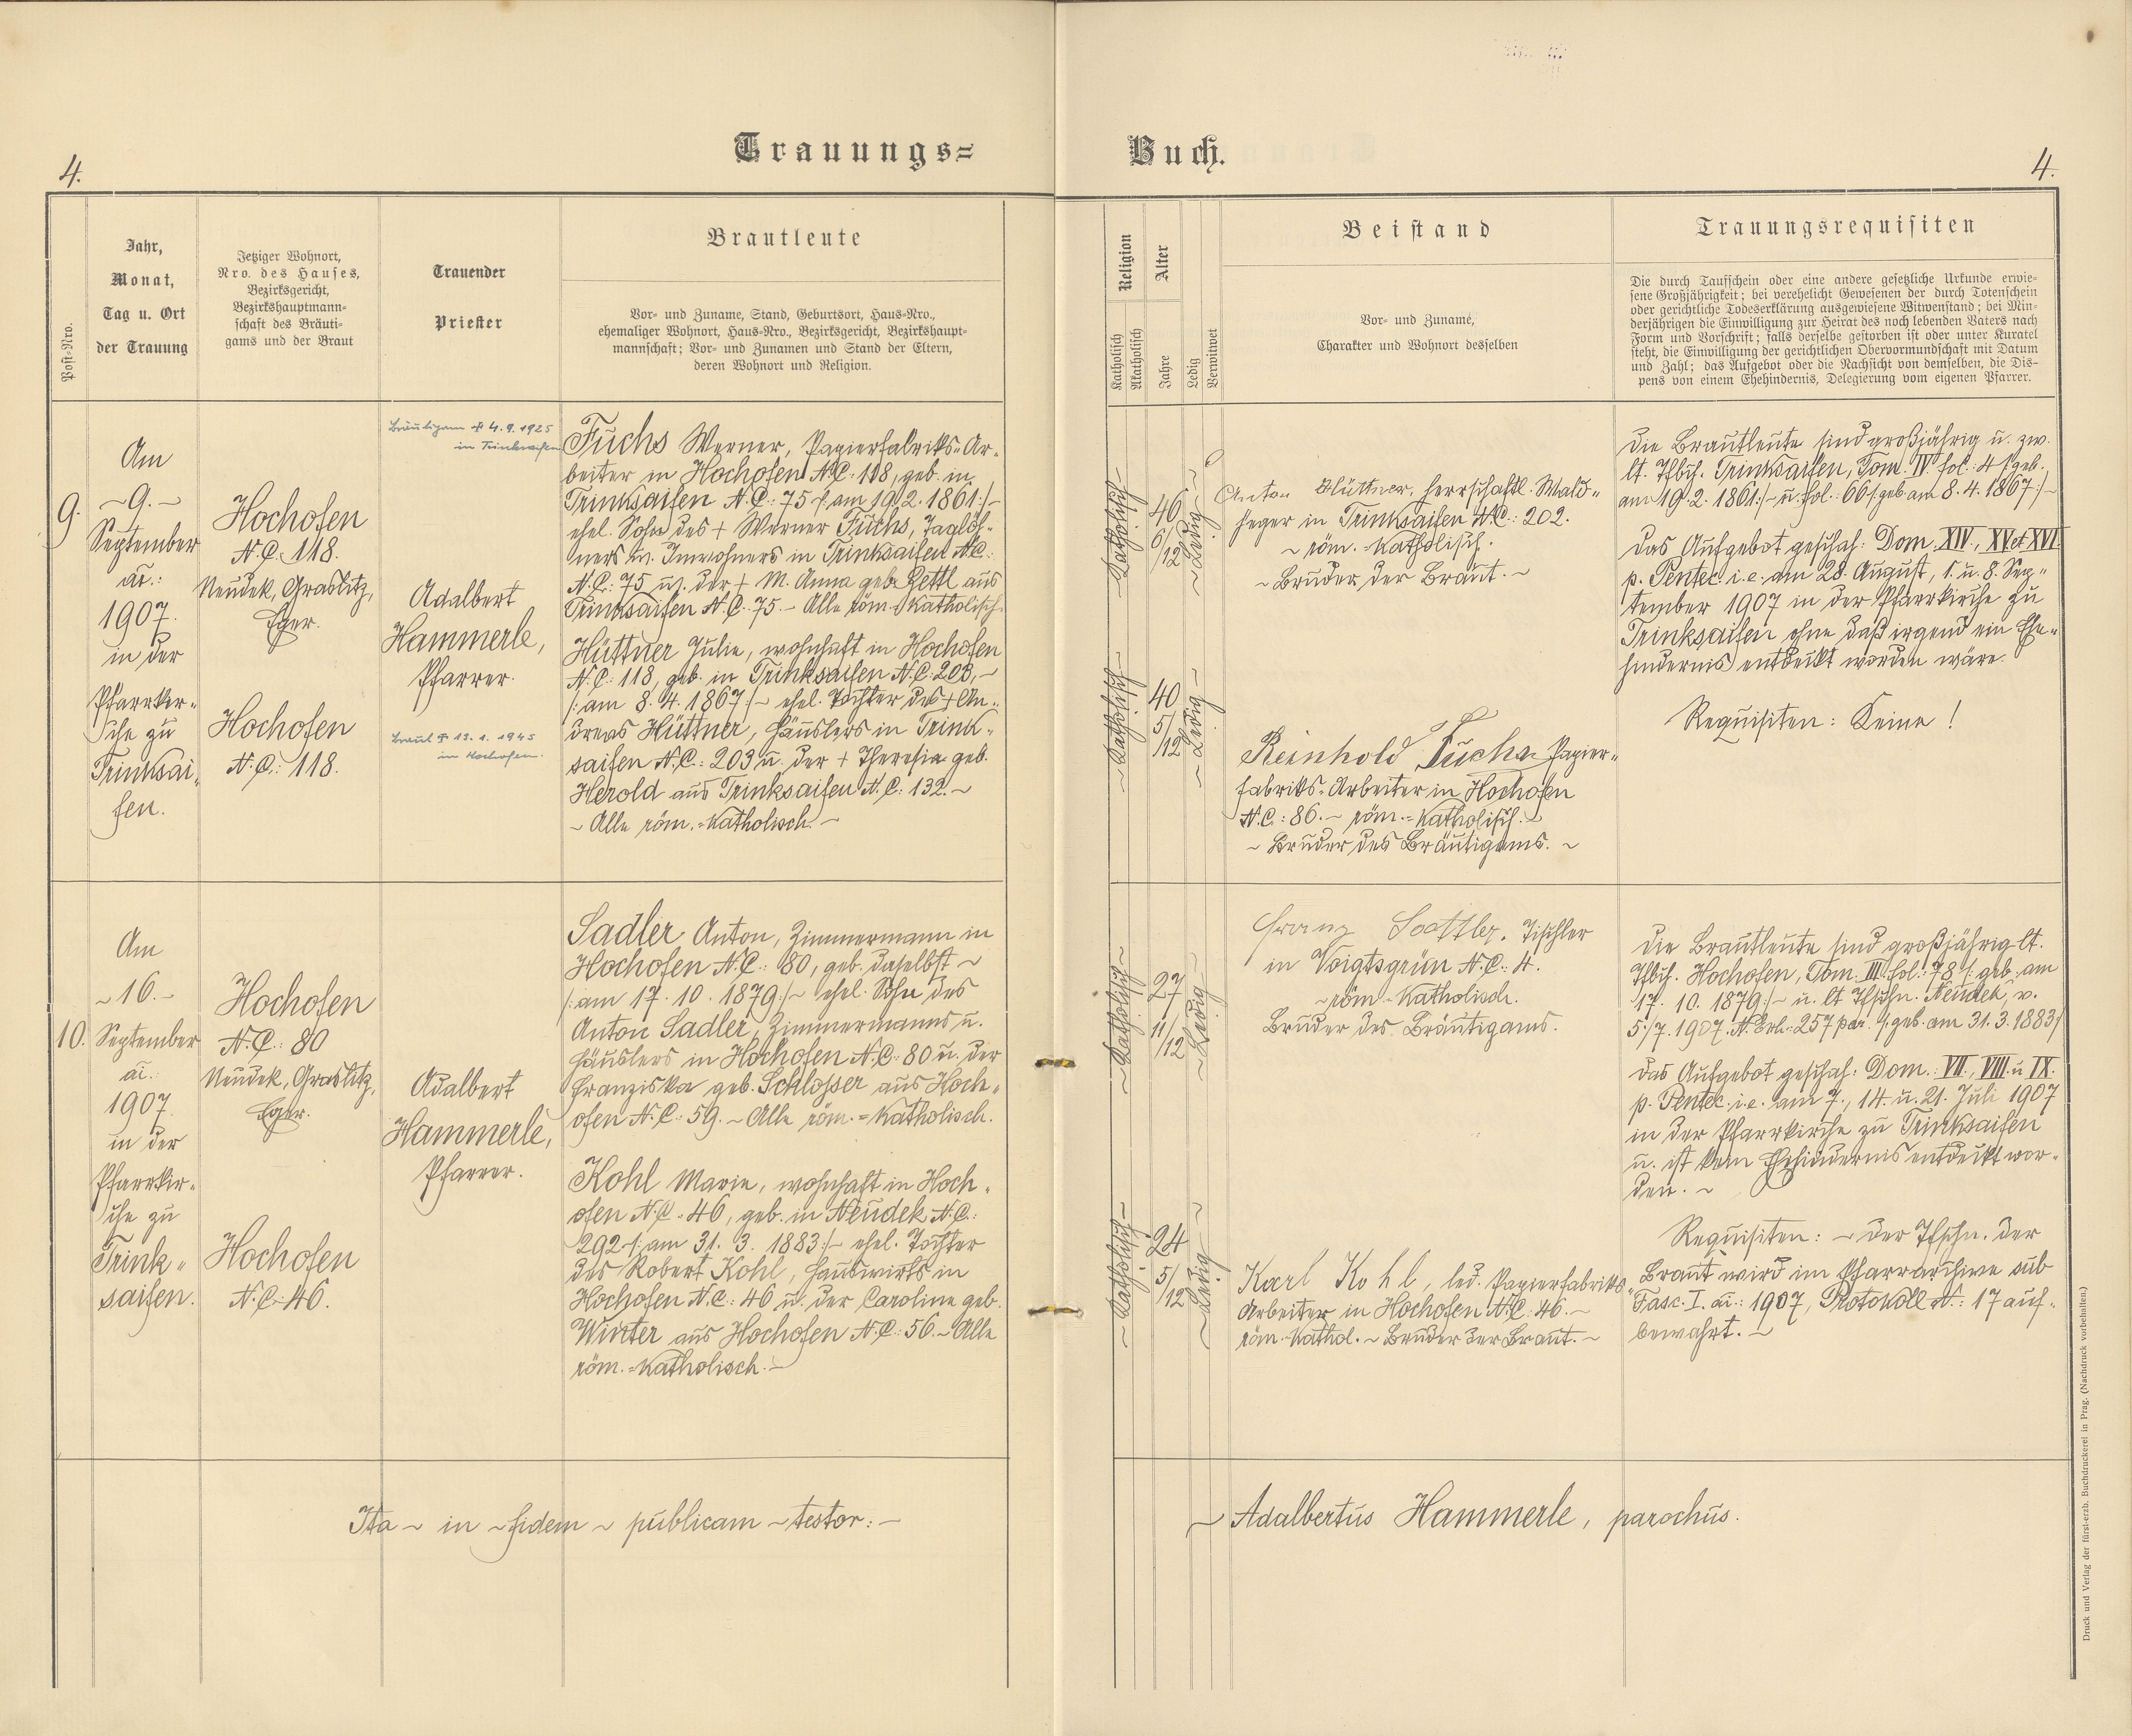 Trauungs=
Buch.
4.
4.
Post=Nro.
Jahr,
Monat,
Tag u. Ort
der Trauung
Jetziger Wohnort,
Nro. des Hauses,
Bezirksgericht,
Bezirkshauptmann-
schaft des Bräuti-
gams und der Braut
Trauender
Priester
Brautleute
Vor- und Zuname, Stand, Geburtsort, Haus=Nro.,
ehemaliger Wohnort, Haus=Nro., Bezirksgericht, Bezirkshaupt-
mannschaft; Vor- und Zunamen und Stand der Eltern,
deren Wohnort und Religion.
Religion
Katholisch
Akatholisch
Alter
Jahre
Ledig
Verwitwet
Beistand
Vor- und Zuname,
Charakter und Wohnort desselben
Trauungsrequisiten
Die durch Taufschein oder eine andere gesetzliche Urkunde erwie-
sene Großjährigkeit; bei verehelicht Gewesenen der durch Totenschein
oder gerichtliche Todeserklärung ausgewiesene Witwenstand; bei Min-
derjährigen die Einwilligung zur Heirat des noch lebenden Vaters nach
Form und Vorschrift; falls derselbe gestorben ist oder unter Kuratel
steht, die Einwilligung der gerichtlichen Obervormundschaft mit Datum
und Zahl; das Aufgebot oder die Nachsicht von demselben, die Dis-
pens von einem Ehehindernis, Delegierung vom eigenen Pfarrer.
9.
Am
~9.~
September
ai.:
1907.
in der
Pfarrkir=
che zu
Trinksai=
fen.
Hochofen
N.C. 118.
Neudek, Graslitz,
Eger.
Hochofen
N.C.: 118.
Bräutigam ✝ 4.9.1925
in Trinksaifen
Adalbert
Hammerle,
Pfarrer.
Braut ✝ 13.1.1945
in Hochofen.
Fuchs Werner, Papierfabriks=Ar=
beiter in Hochofen N.C. 118, geb. in
Trinksaifen N.C.: 75 /: am 19.2.1861 :/~
ehel. Sohn des + Werner Fuchs, Taglöh=
ners u. Inwohners in Trinksaifen N.C.
N.C.: 75 u. der + M. Anna geb. Zettl aus
Trinksaifen N.C. 75.~ Alle röm.=Katholisch.
Hüttner Julie, wohnhaft in Hochofen
N.C.: 118, geb. in Trinksaifen N.C: 203,~
/: am 8.4.1867 :/~ ehel. Tochter des + An=
dreas Hüttner, Häuslers in Trink=
saifen N.C.: 203 u. der + Theresia geb.
Herold aus Trinksaifen N.C.: 132.~
~ Alle röm.=Katholisch.~
~Katholisch~
46
6/12
~Ledig~
~Katholisch~
40
5/12
~Ledig~
Anton Hüttner, herrschaftl. Wald=
heger in Trinksaifen N.C.: 202.
~ röm.=Katholisch.
~ Bruder der Braut. ~
Reinhold Fuchs Papier=
fabriks=Arbeiter in Hochofen
N.C.: 86.~ röm.=Katholisch.~
~ Bruder des Bräutigams. ~
Die Brautleute sind großjährig u. zw.
lt. Tfbch. Trinksaifen, Tom. IV. fol.: 4 /: geb.
am 19.2.1861 :/~ u. fol.: 66 /: geb. am 8.4.1867 :/~
Das Aufgebot geschah: Dom. XIV., XV. et XVI.
p. Pentec. i.e. am 28. August, 1. u. 8. Sep=
tember 1907 in der Pfarrkirche zu
Trinksaifen ohne daß irgend ein Ehe=
hindernis entdeckt worden wäre.
Requisiten: Keine!
10.
Am
~16.~
September
ai.:
1907.
in der
Pfarrkir=
che zu
Trink=
saifen.
Hochofen
N.C.: 80
Neudek, Graslitz,
Eger.
Hochofen
N.C.: 46.
Adalbert
Hammerle,
Pfarrer.
Sadler Anton, Zimmermann in
Hochofen N.C.: 80, geb. daselbst ~
/: am 17.10.1879 :/~ ehel. Sohn des
Anton Sadler, Zimmermanns u.
Häuslers in Hochofen N.C.: 80 u. der
Franziska geb. Schlosser aus Hoch=
ofen N.C.: 59.~ Alle röm.=Katholisch.
Kohl Marie, wohnhaft in Hoch=
ofen N.C.: 46, geb. in Neudek N.C.:
292 /: am 31.3.1883 :/~ ehel. Tochter
des Robert Kohl, Hauswirts in
Hochofen N.C.: 46 u. der Caroline geb.
Winter aus Hochofen N.C.: 56.~ Alle
röm.=Katholisch.~
~Katholisch~
27
11/12
~Ledig~
~Katholisch~
24
5/12
~Ledig~
Franz Sattler, Tischler
in Voigtsgrün N.C.: 4.
~röm.=Katholisch.
Bruder des Bräutigams.
Karl Kohl, led. Papierfabriks=
Arbeiter in Hochofen N.C. 46.~
röm.=Kathol.~ Bruder der Braut.~
Die Brautleute sind großjährig lt.
Tfbch. Hochofen, Tom. III. fol.: 78 /: geb. am
17.10.1879 :/~ u. lt. Tfschn. Neudek, v.
5./7. 1907. N. Exh.: 257 par. /: geb. am 31.3.1883 :/
Das Aufgebot geschah: Dom.: VII., VIII. u. IX.
p. Pentec. i.e. am 7., 14. u. 21. Juli 1907
in der Pfarrkirche zu Trinksaifen
u. ist kein Ehehindernis entdeckt wor=
den. ~
Requisiten: ~ Der Tfschn. der
Braut wird im Pfarrarchive sub
Fasc. I. ai.: 1907, Protokoll N.: 17 auf=
bewahrt. ~
Ita ~ in ~ fidem ~ publicam ~ testor: ~
~ Adalbertus Hammerle, parochus.
Druck und Verlag der fürst-erzb. Buchdruckerei in Prag. (Nachdruck vorbehalten.)